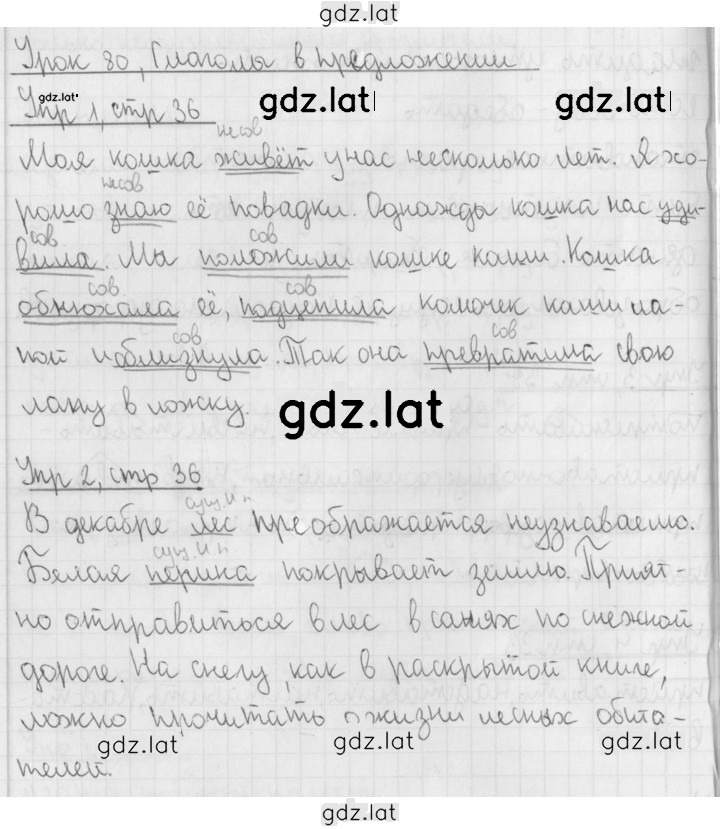 gdz.lat
Урок 80, Глаголы в предложении
gdz.lat
gdz.lat
gdz.lat
Упр 1, стр 36
несов
Моя кошка живёт у нас несколько лет. Я хо-
несов
рошо знаю её повадки. Однажды кошка нас уди-
сов сов
вила. Мы положили кошке каши. Кошка
сов сов
обнюхала её, подцепила комочек каши ла-
сов сов
пой и облизнула. Так она превратила свою
лапу в ложку
gdz.lat
Упр 2, стр 36
сущ. И п
В декабре лес преображается неузнаваемо.
сущ. И п
Белая перина покрывает землю. Прият-
но отправиться в лес в санях по снежной
дороге. На снегу, как в раскрытой книге,
можно прочитать о жизни лесных обита-
gdz.lat
gdz.lat
gdz.lat
телей.
gdz.lat